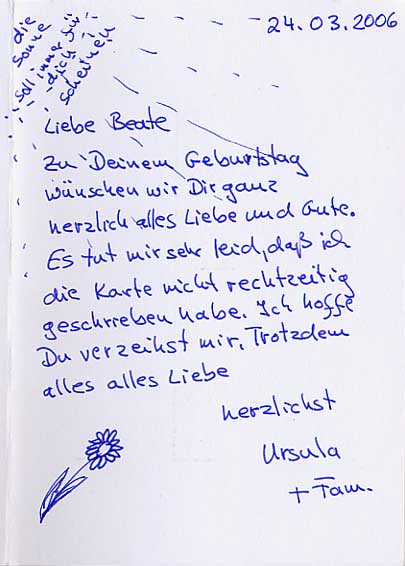 24.03.2006
die
Sonne
soll immer für
dich
scheinen
Liebe Beate
zu Deinem Geburtstag
wünschen wir Dir ganz
herzlich alles Liebe und Gute.
Es tut mir sehr leid, daß ich
die Karte nicht rechtzeitig
geschrieben habe. Ich hoffe
Du verzeihst mir. Trotzdem
alles alles Liebe
herzlichst
Ursula
+ Fam.